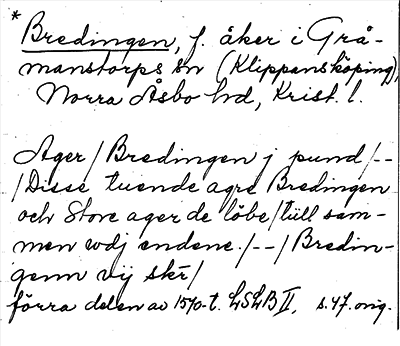 * Bredingen, f. åker i Grå-
manstorps sn (Klippansköping),
Norra Åsbo hd, Krist. l.
Ager / Bredingen j pund /--
/ Disse tuende agre Bredingen
och Store ager de löbe / tüll sam-
men wdj endene. /--/ Bredin-
genn vij skr̄ /
förra delen av 1570-t. LSLB II, s. 47. orig.